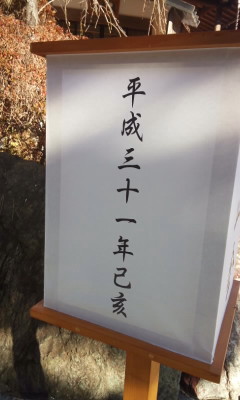 平成三十一年己亥